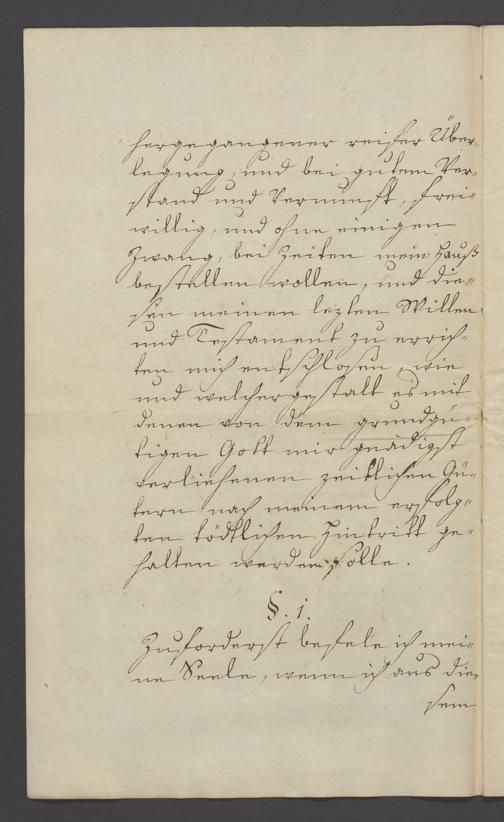 hergegangener reifer Über-
legung, und bei gutem Ver-
stand und Vernunft, frei-
willig, und ohne einigen
Zwang, bei Zeiten mein Hauß
bestellen wollen, und die-
sen meinen lezten Willen
und Testament zu errich-
ten mich entschlosen, wie
und welchergestalt es mit
denen von dem grundgü-
tigen Gott mir gnädigst
verliehenen zeitlichen Gü-
tern nach meinem erfolg-
ten tödtlichen Hintritt ge-
halten werden solle.
§. 1.
Zuforderst befele ich mei-
ne Seele, wenn ich aus die-
sem